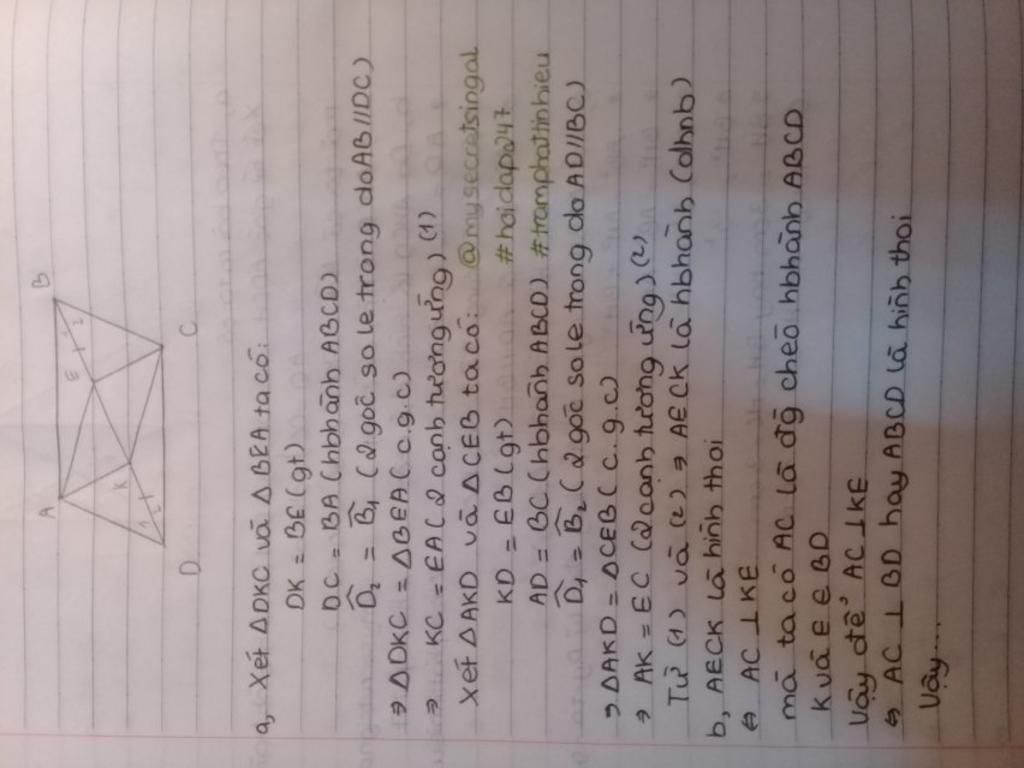 A B
E 1 2
K
1 2
D C
a, Xét ΔDKC và ΔBEA ta có:
DK = BE (gt)
DC = BA (hbhành ABCD)
D̂₂ = B̂₁ (2 góc so le trong do AB//DC)
⇒ ΔDKC = ΔBEA (c.g.c)
⇒ KC = EA (2 cạnh tương ứng) (1)
Xét ΔAKD và ΔCEB ta có: @mysecretsingal
KD = EB (gt) #hoidap247
AD = BC (hbhành ABCD) #tramphattinhieu
D̂₁ = B̂₂ (2 góc so le trong do AD//BC)
⇒ ΔAKD = ΔCEB (c.g.c)
⇒ AK = EC (2 cạnh tương ứng) (2)
Từ (1) và (2) ⇒ AECK là hbhành (dhnb)
b, AECK là hình thoi
⇔ AC ⊥ KE
mà ta có AC là đg chéo hbhành ABCD
K và E ∈ BD
Vậy để AC ⊥ KE
⇔ AC ⊥ BD hay ABCD là hình thoi
Vậy....